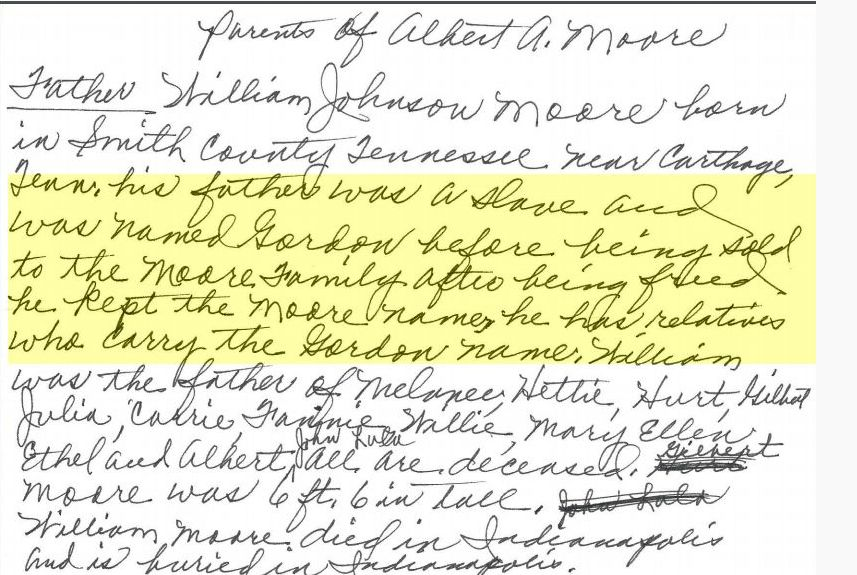 Parents of Albert A. Moore
Father William Johnson Moore born
in Smith County Tennessee near Carthage,
Tenn. his father was a slave and
was named Gordon before being sold
to the Moore Family after being freed
he kept the Moore name, he has relatives
who carry the Gordon name. William
was the father of Melanee, Hettie, Hurt, Gilbert
Julia, Carrie, Fannie, Willie, Mary Ellen,
John Lula
Ethel and Albert, All are deceased. Gilbert
Moore was 6 ft. 6 in tall. John Lula
William Moore died in Indianapolis
and is buried in Indianapolis.